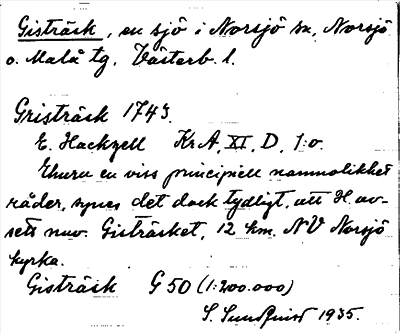 Gisträsk, en sjö i Norsjö sn, Norsjö
o. Malå tg, Västerb. l.
Gristräsk 1743.
E. Hackzell KrA, XI, D, 1:o.
Ehuru en viss principiell namnolikhet
råder, synes det dock tydligt, att H. av-
setts nuv. Gisträsket, 12 km. NV Norsjö
kyrka.
Gisträsk G 50 (1:200.000)
S. Sundqvist 1935.